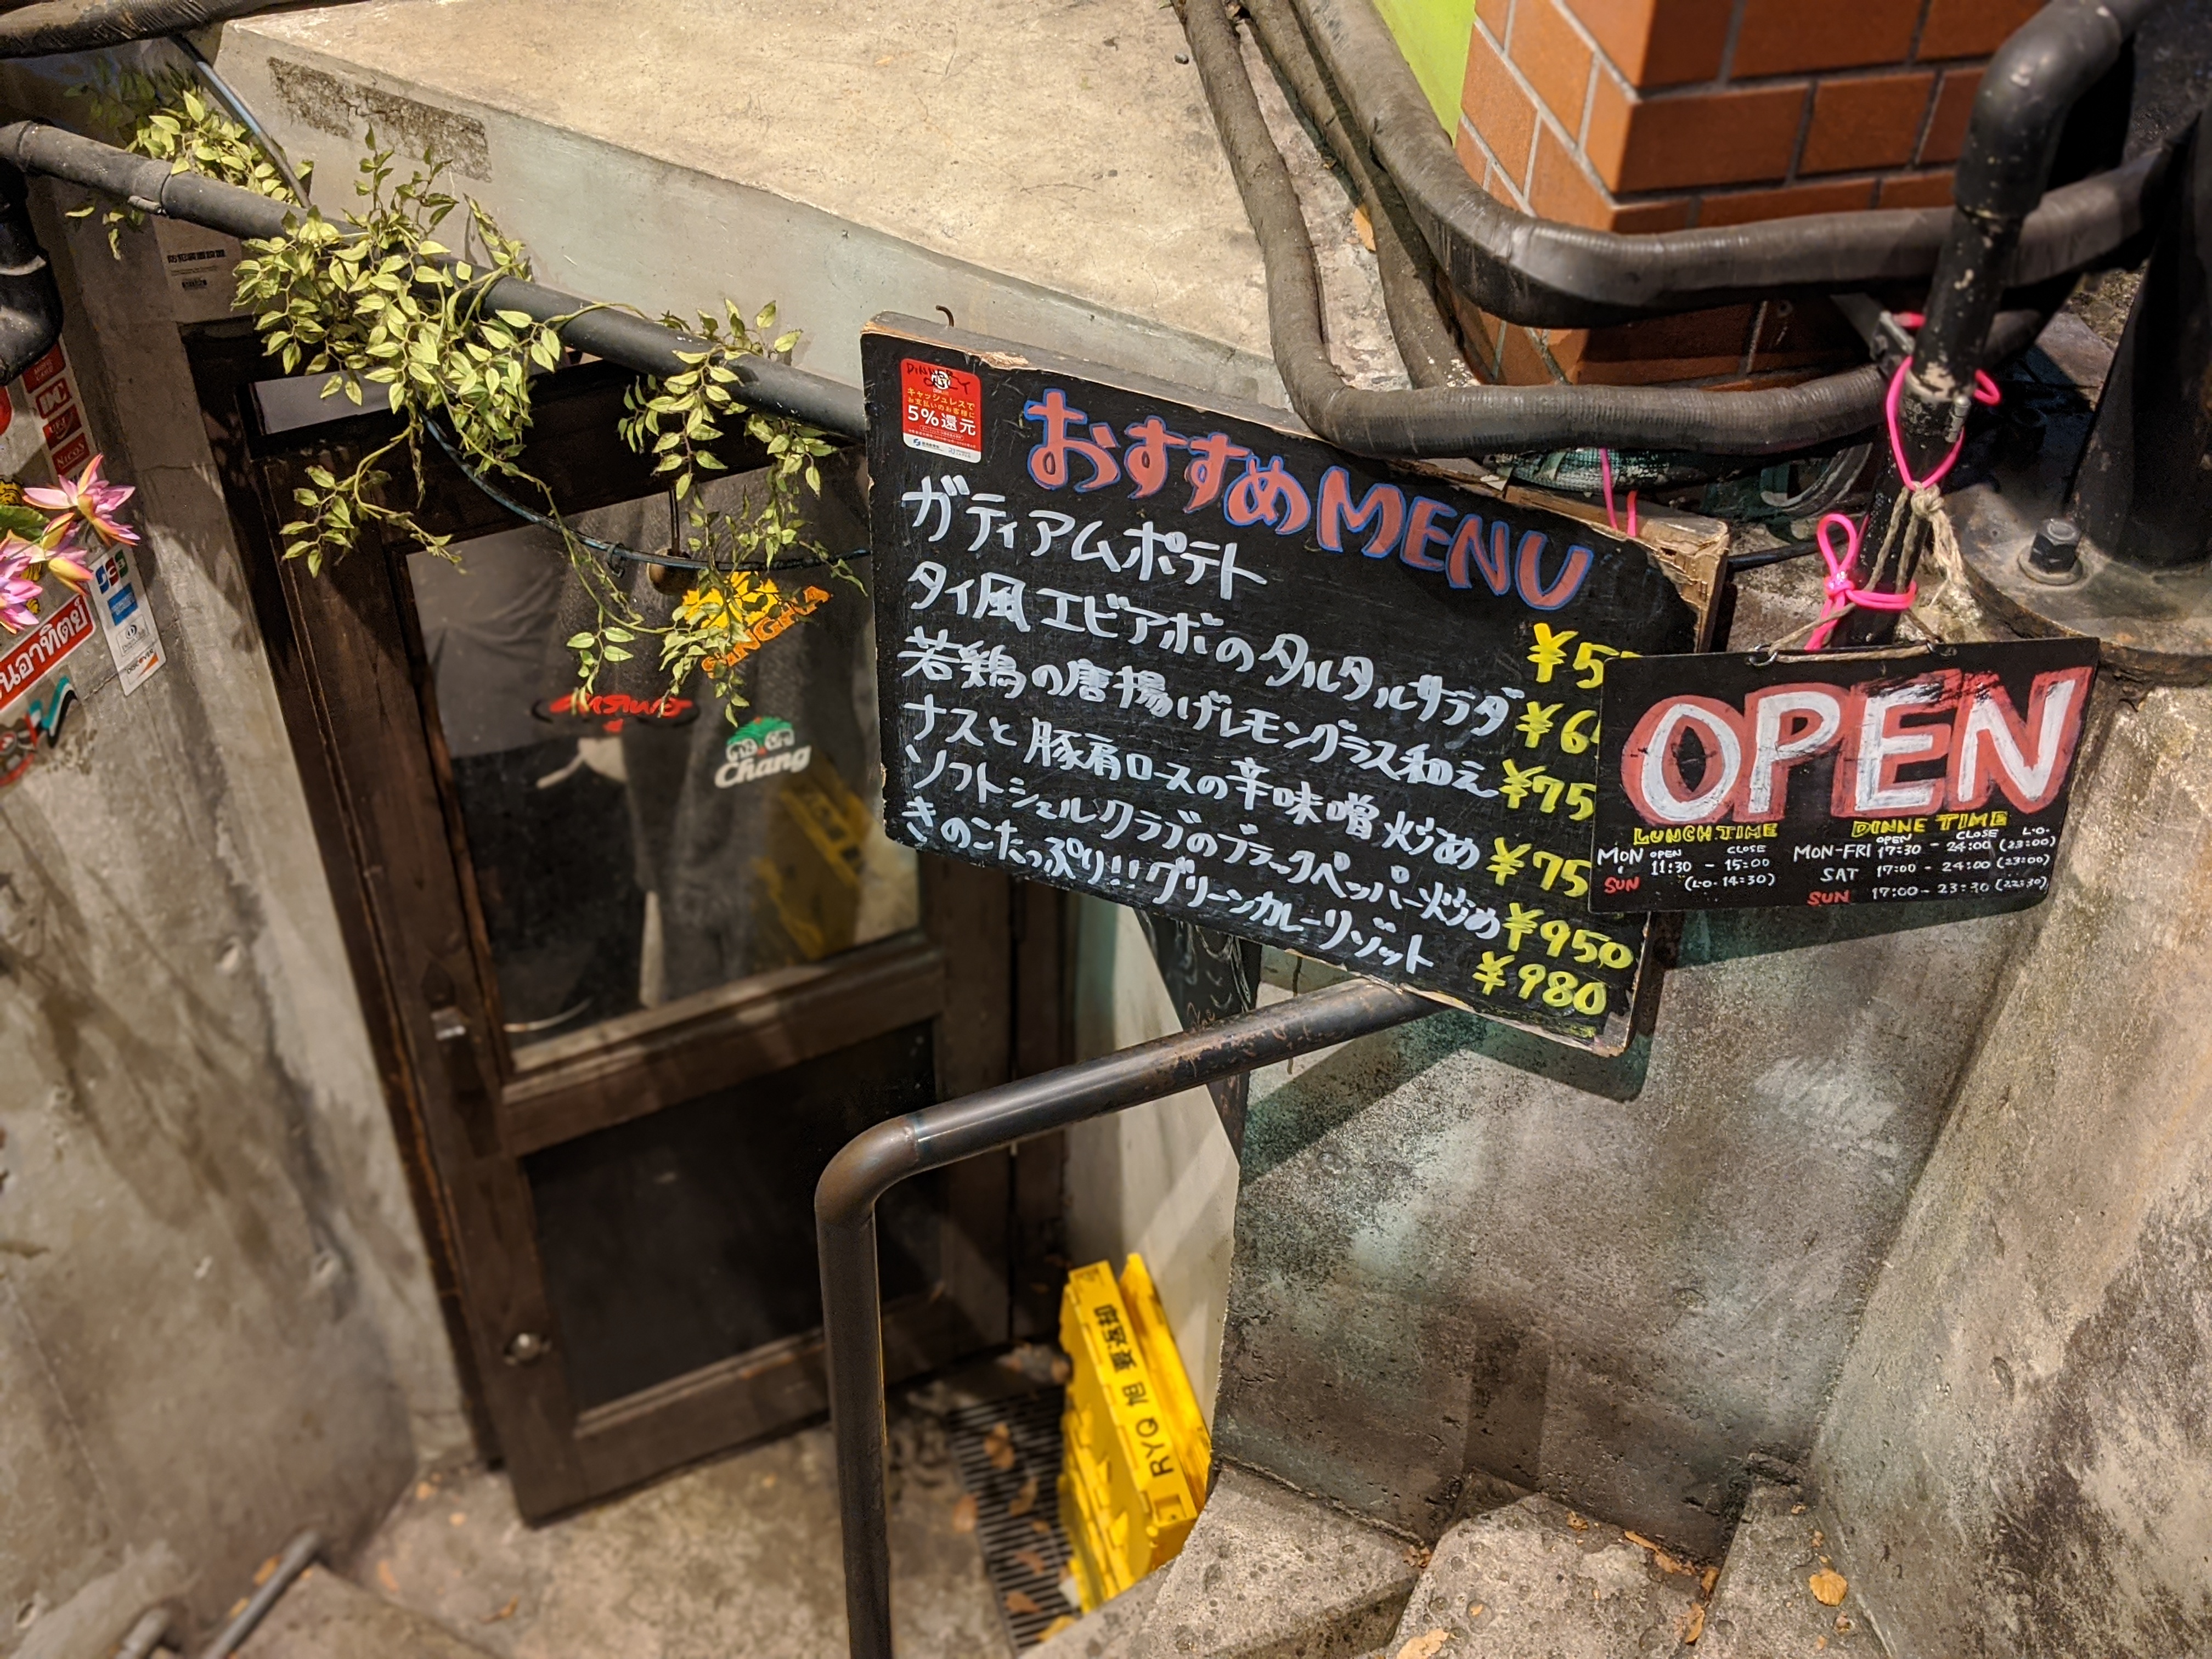 防犯装置設置
DC
NICOS
JCB
DISCOVER
นอาทิตย์
SINGHA
Chang
DINNER ONLY
キャッシュレスで
お支払いのお客様に
5%還元
おすすめMENU
ガティアムポテト ¥5
タイ風エビアボのタルタルサラダ ¥6
若鶏の唐揚げレモングラス和え ¥75
ナスと豚肩ロースの辛味噌炒め ¥75
ソフトシェルクラブのブラックペッパー炒め ¥950
きのこたっぷり!!グリーンカレーリゾット ¥980
OPEN
LUNCH TIME
MON OPEN CLOSE
11:30 - 15:00
SUN (L.O. 14:30)
DINNE TIME
OPEN CLOSE L.O.
MON-FRI 17:30 - 24:00 (23:00)
SAT 17:00 - 24:00 (23:00)
SUN 17:00 - 23:30 (22:30)
RYO 旭 要返却